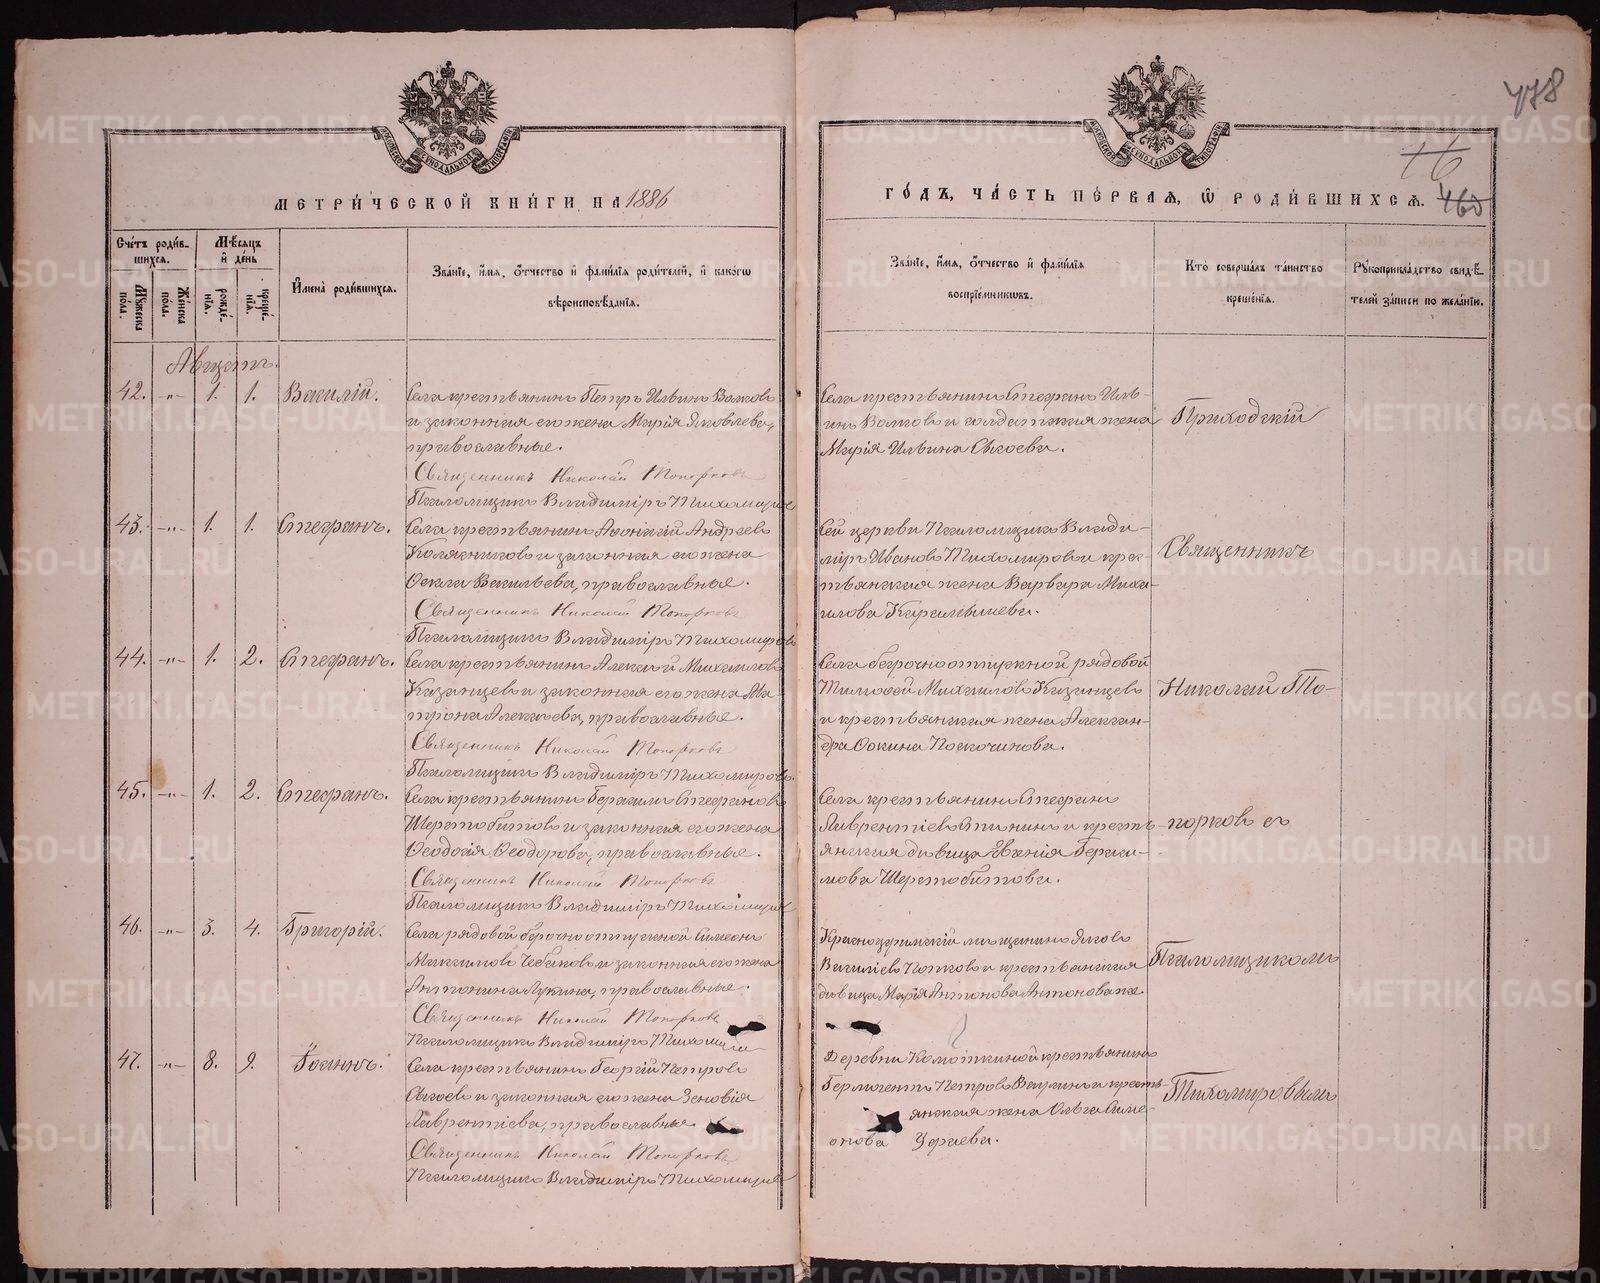 478
16
460
МОСКОВСКОЙ СѴНОДАЛЬНОЙ ТИПОГРАФІИ
МОСКОВСКОЙ СѴНОДАЛЬНОЙ ТИПОГРАФІИ
МЕТРИ́ЧЕСКОЙ КНИ́ГИ НА 1886
ГО́ДЪ, ЧА́СТЬ ПЕ́РВАѦ, Ѡ҆ РОДИ́ВШИХСѦ.
Сче́тъ роди́в-
шихсѧ.
Мꙋжеска по́ла.
Же́нска по́ла.
Мѣ́сѧцъ и҆ де́нь
рожде́нїѧ.
креще́нїѧ.
И҆мена̀ роди́вшихсѧ.
Зва́нїе, и҆́мѧ, ѻ҆́тчество и҆ фамн́лїѧ роди́телей, и҆ како́гѡ
вѣроисповѣ́данїѧ.
Зва́нїе, и҆́мѧ, ѻ҆́тчество и҆ фами́лїѧ
воспрїе́мникѡвъ.
Кто̀ соверша́лъ та́инство
креще́нїѧ.
Рꙋкоприкла́дство свидѣ́-
телей за́писи по жела́нїю.
Августъ.
42. -"- 1. 1. Василій.
Села крестьянинъ Петръ Ильинъ Волковъ
и законная его жена Марія Яковлева,
православные.
Священникъ Николай Топорковъ
Псаломщикъ Владиміръ Тихомировъ
Села крестьянинъ Стефанъ Иль-
инъ Волковъ и солдатская жена
Марія Ильина Сысоева.
Приходскій
43. -"- 1. 1. Стефанъ.
Села крестьянинъ Андреевъ
и законная его жена
Васильева, православные.
Священникъ Николай Топорковъ
Псаломщикъ Владиміръ Тихомировъ
Сей церкви Псаломщикъ Влади-
міръ Ивановъ Тихомировъ и крес-
тьянская жена Варвара Миха-
илова Каралышева.
Священникъ
44. -"- 1. 2. Стефанъ.
Села крестьянинъ Алексѣй Михаиловъ
Казанцевъ и законная его жена Ма-
трона Алексѣева, православные.
Священникъ Николай Топорковъ
Псаломщикъ Владиміръ Тихомировъ.
Села безсрочноотпускной рядовой
Тимофей Михаиловъ Казанцевъ
и крестьянская жена Алексан-
дра Фокина Поскочинова.
Николай То-
45. -"- 1. 2. Стефанъ.
Села крестьянинъ Герасимъ Стефановъ
Шерстобитовъ и законная его жена
Ѳеодосія Ѳеодорова, православные.
Священникъ Николай Топорковъ
Псаломщикъ Владиміръ Тихомировъ
Села крестьянинъ Стефанъ
Лаврентіевъ и кресть-
янская дѣвица Евгенія Гераси-
мова Шерстобитова.
порковъ съ
46. -"- 3. 4. Григорій.
Села рядовой безсрочноотпускной Симеонъ
Максимовъ и законная его жена
Антонина Лукина, православные.
Священникъ Николай Топорковъ
Псаломщикъ Владиміръ Тихомировъ
Красноуфимскій мѣщанинъ Яковъ
Василіевъ Попковъ и крестьянская
дѣвица Марія Антонова
Псаломщикомъ
47. -"- 8. 9. Іоаннъ.
Села крестьянинъ Георгій Петровъ
Сысоевъ и законная его жена Зеновія
Лаврентіева, православные.
Священникъ Николай Топорковъ
Псаломщикъ Владиміръ Тихомировъ
Деревни крестьянинъ
Гермогенъ Петровъ и кресть-
янская жена Ольга Симе-
онова Уфаева.
Тихомировымъ
METRIKI.GASO-URAL.RU